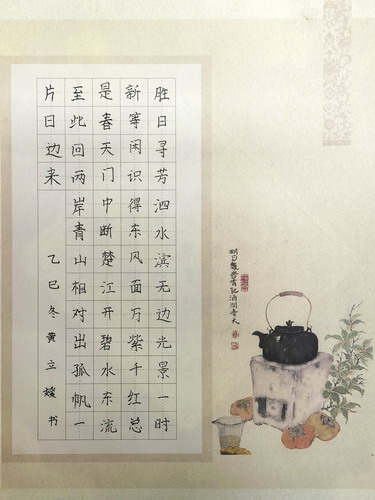 胜日寻芳泗水滨无边光景一时
新等闲识得东风面万紫千红总
是春天门中断楚江开碧水东流
至此回两岸青山相对出孤帆一
片日边来
乙巳冬黄立媛书